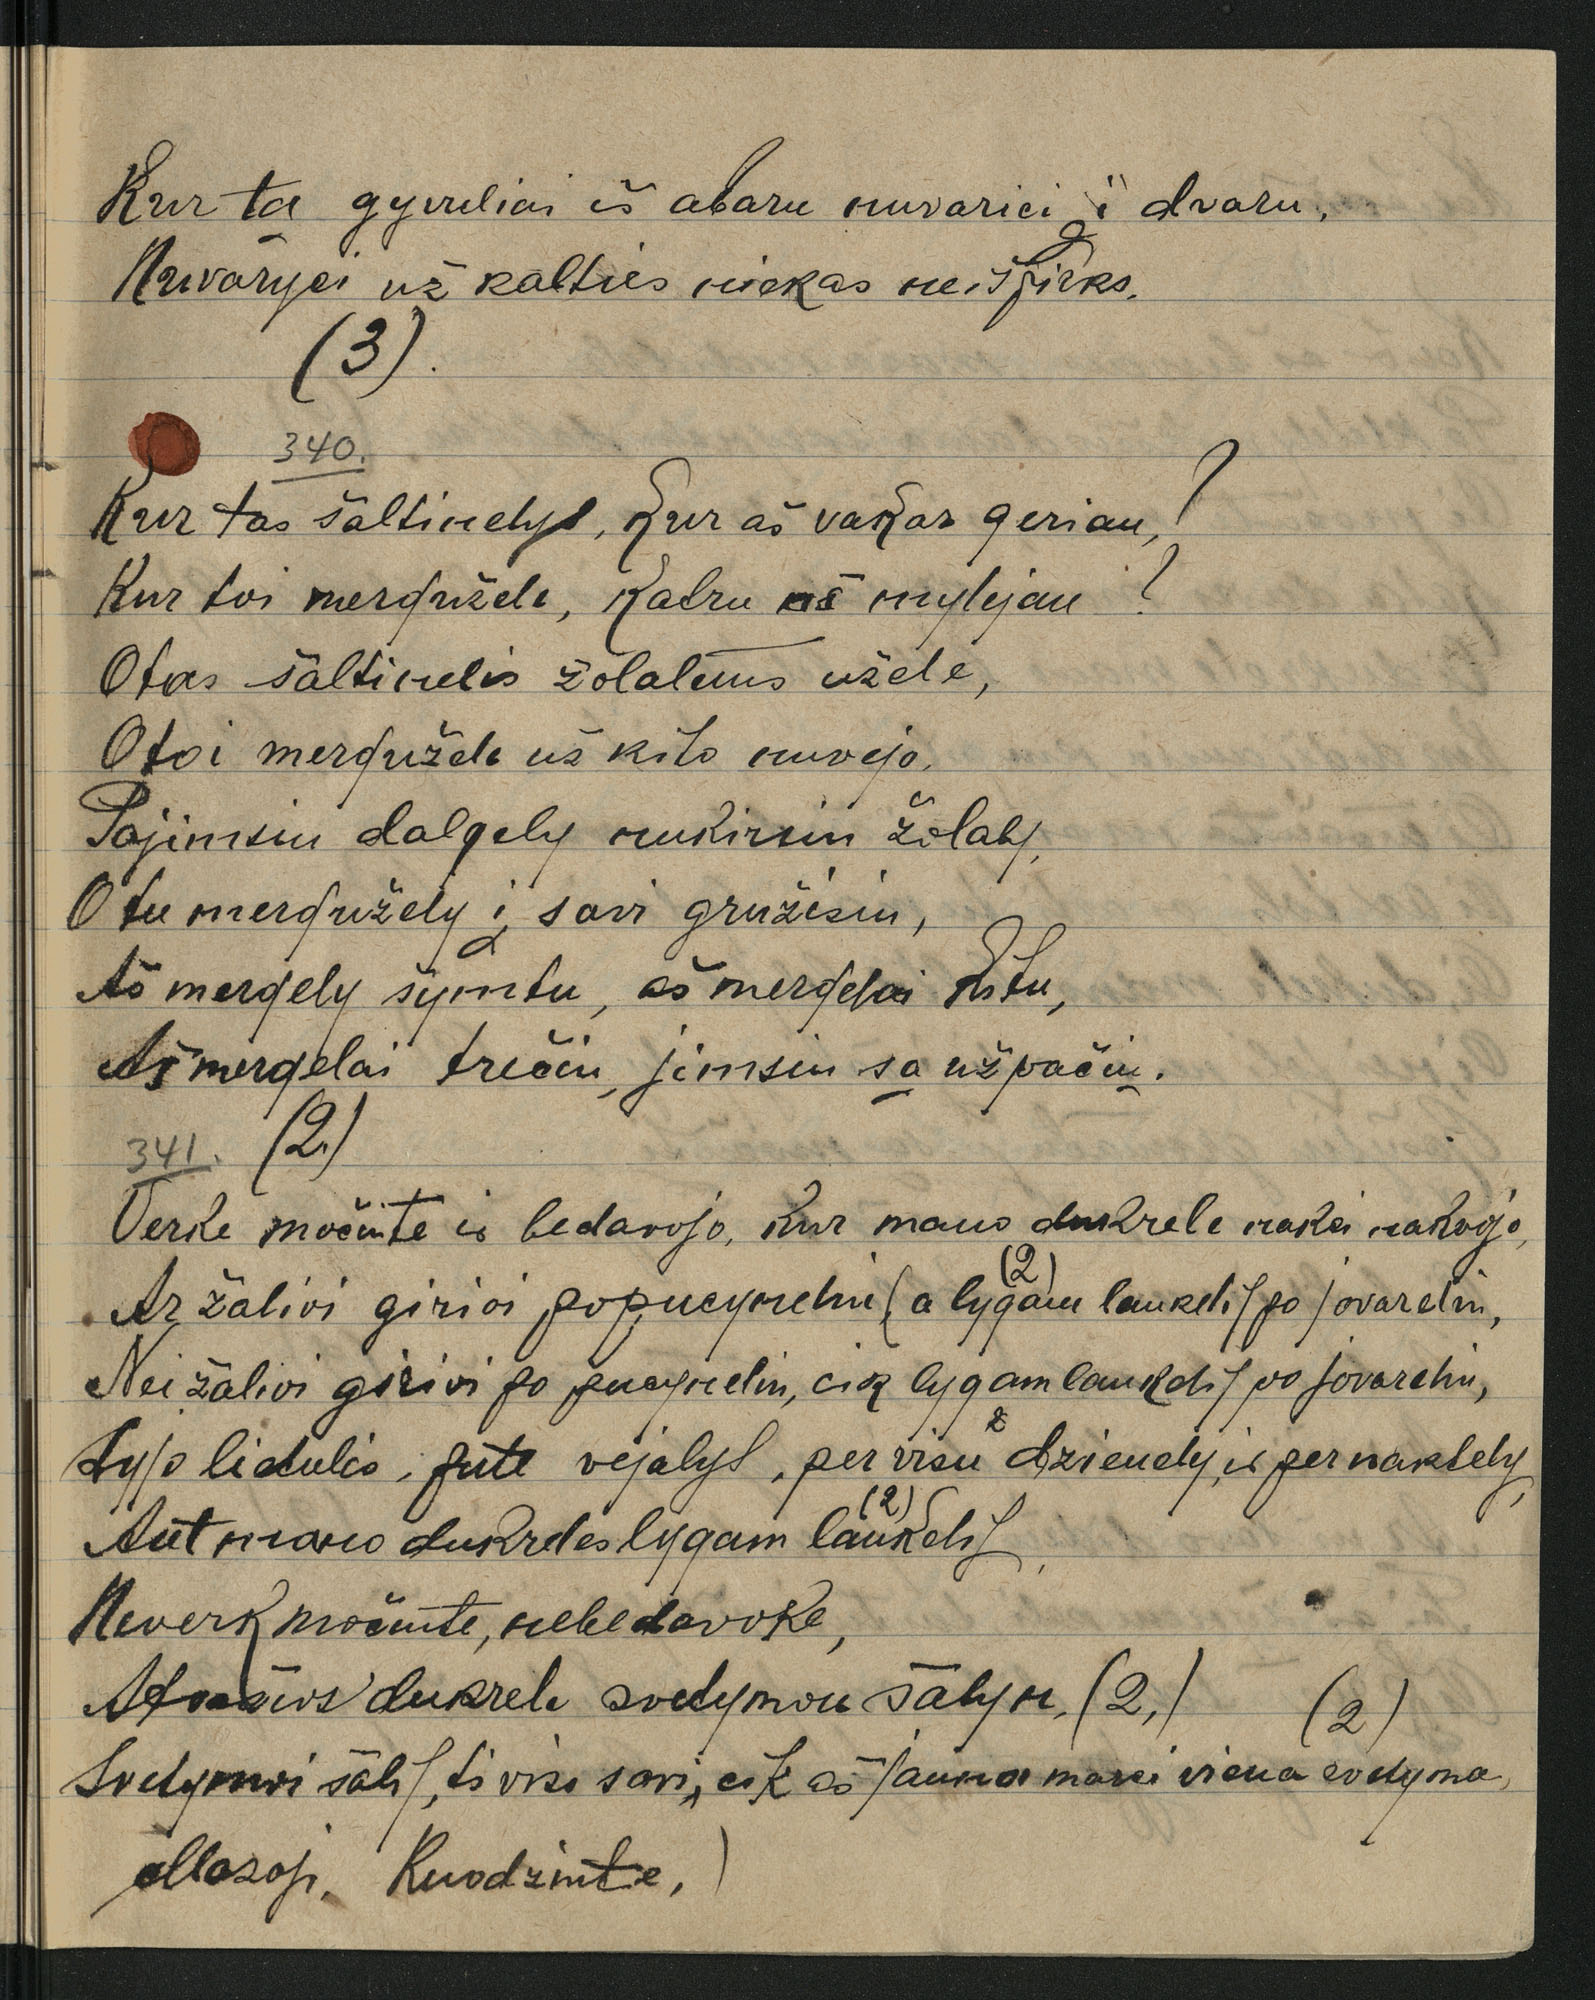 Kur ta gyvuliai iš abaru nuvarici į dvaru,
Nuvaryci už kalties niekas neišpirks.
(3).
340.
Kur tas šaltinelys, kur aš vakar geriau,?
Kur toi mergužele, katru aš mylejau?
O tas šaltinelis žolalems užele,
O toi mergužele už kito nuvejo.
Pajimsiu dalgely nukirsiu žolaly,
O tu mergužely į savi gružisiu,
Aš mergely šymtu, aš mergelai kitu,
Aš mergelai trečiu, jimsiu sa už pačiu.
341. (2.)
Verke močiute ir bedavojo, kur mano dukrele nakci nakvojo,
Ar žalioi girioi po pucyneliu (a lygam laukeli) po jovareliu, (2)
Nei žalioi girioi po pucyneliu, cik lygam laukeli) po jovareliu,
Lyjo lietulis, pute vejalys, per visu dzienely, ir per naktely,
Ant mano dukreles lygam laukeli) (2)
Neverk močiute, nebedavoke,
dukrele svetymon šalyn, (2,) (2)
Svetymoi šali), ti visi savi, cik aš jauna marci viena svetyma,
Mazoji Kuodziute,)